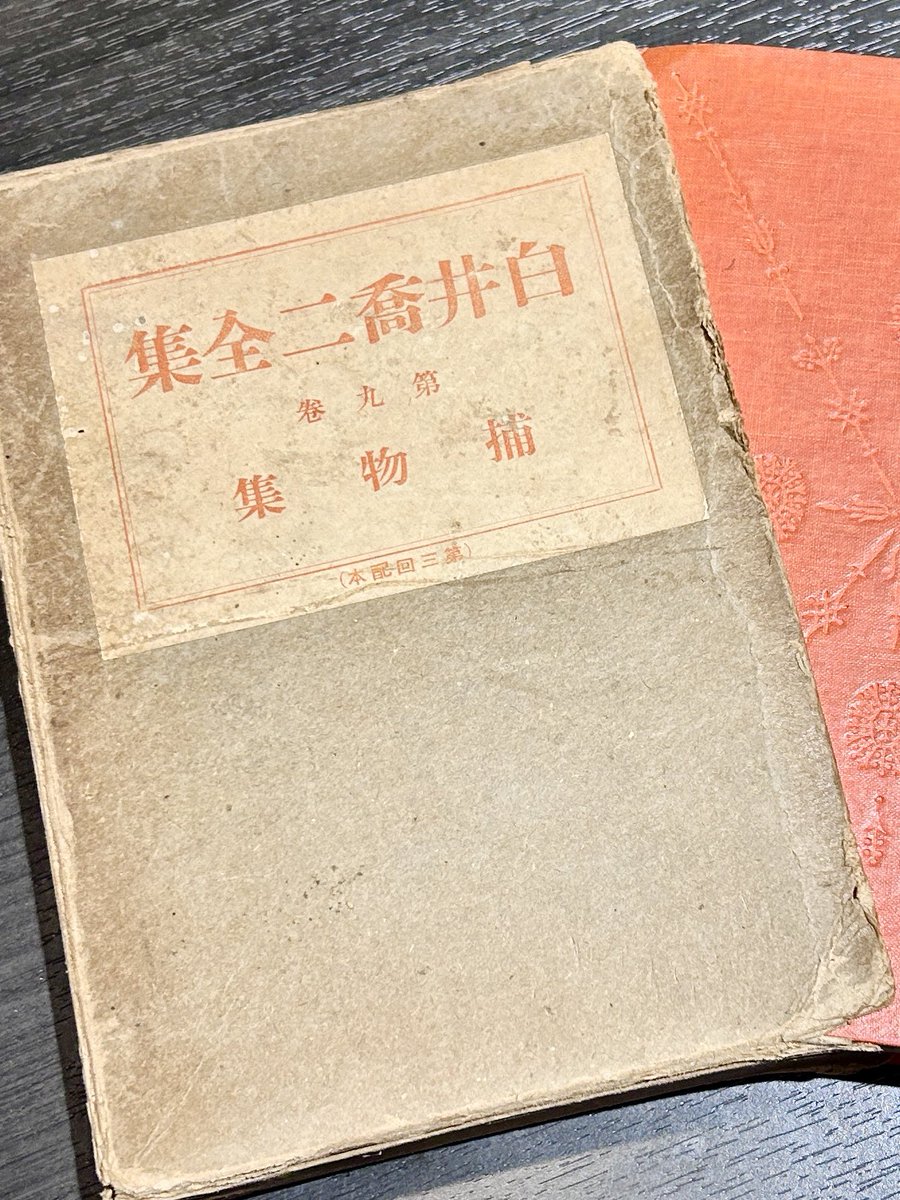 白井喬二全集
第九卷
捕物集
(第三回配本)